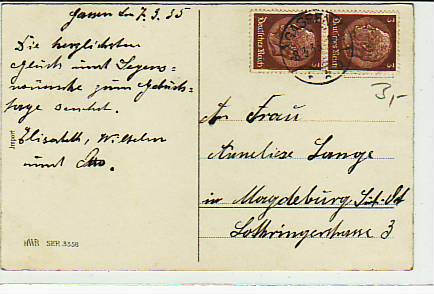 Gassen den 7.3.35
Die herzlichsten
Glück und Segens-
wünsche zum Geburts-
tage sendet.
Elisabeth, Wilhelm
und Otto.
Import
HWB SER 3358
GASSEN
Deutsches Reich 3
Deutsches Reich 3
3,-
An Frau
Anneliese Lange
in Magdeburg
Lothringerstrasse 3